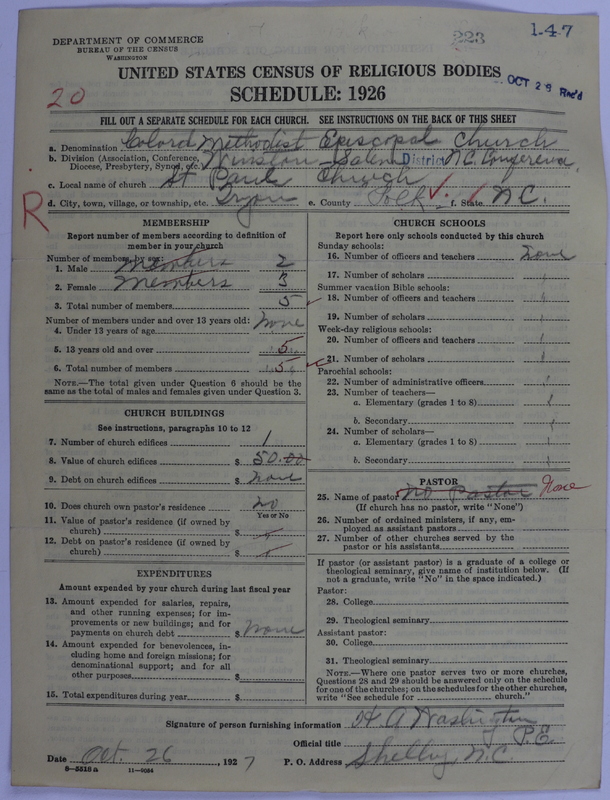 223
1-4-7
DEPARTMENT OF COMMERCE
BUREAU OF THE CENSUS
WASHINGTON
UNITED STATES CENSUS OF RELIGIOUS BODIES
OCT 29 Rec'd
20
SCHEDULE: 1926
FILL OUT A SEPARATE SCHEDULE FOR EACH CHURCH. SEE INSTRUCTIONS ON THE BACK OF THIS SHEET
a. Denomination Colord Methodist Episcopal Church
b. Division (Association, Conference, Diocese, Presbytery, Synod, etc.) Winston-Salem District N.C. Conference
c. Local name of church St Paul Church
d. City, town, village, or township, etc. Tryon e. County Polk f. State N.C.
R
MEMBERSHIP
Report number of members according to definition of
member in your church
Number of members by sex:
1. Male members 2
2. Female members 3
3. Total number of members 5
Number of members under and over 13 years old:
4. Under 13 years of age None
5. 13 years old and over 5
6. Total number of members 5
NOTE.—The total given under Question 6 should be the
same as the total of males and females given under Question 3.
CHURCH BUILDINGS
See instructions, paragraphs 10 to 12
7. Number of church edifices 1
8. Value of church edifices $ 50.00
9. Debt on church edifices $ None
10. Does church own pastor's residence No
Yes or No
11. Value of pastor's residence (if owned by
church) $
12. Debt on pastor's residence (if owned by
church) $
EXPENDITURES
Amount expended by your church during last fiscal year
13. Amount expended for salaries, repairs,
and other running expenses; for im-
provements or new buildings; and for
payments on church debt $ None
14. Amount expended for benevolences, in-
cluding home and foreign missions; for
denominational support; and for all
other purposes $
15. Total expenditures during year $
CHURCH SCHOOLS
Report here only schools conducted by this church
Sunday schools:
16. Number of officers and teachers None
17. Number of scholars
Summer vacation Bible schools:
18. Number of officers and teachers
19. Number of scholars
Week-day religious schools:
20. Number of officers and teachers
21. Number of scholars
Parochial schools:
22. Number of administrative officers
23. Number of teachers—
a. Elementary (grades 1 to 8)
b. Secondary
24. Number of scholars—
a. Elementary (grades 1 to 8)
b. Secondary
PASTOR
25. Name of pastor No Pastor None
(If church has no pastor, write "None")
26. Number of ordained ministers, if any, em-
ployed as assistant pastors
27. Number of other churches served by the
pastor or his assistants
If pastor (or assistant pastor) is a graduate of a college or
theological seminary, give name of institution below. (If
not a graduate, write "No" in the space indicated.)
Pastor:
28. College
29. Theological seminary
Assistant pastor:
30. College
31. Theological seminary
NOTE.—Where one pastor serves two or more churches,
Questions 28 and 29 should be answered only on the schedule
for one of the churches; on the schedules for the other churches,
write "See schedule for church."
Signature of person furnishing information H. A Washington
Official title P.E.
Date Oct. 26, 1927 P. O. Address Shelby N.C.
8-5518 a 11-9034